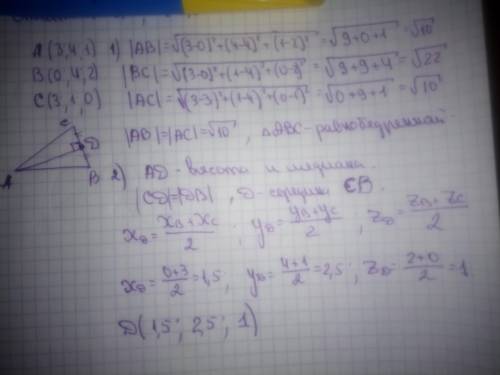 A(3,4,1) 1) |AB|=√(3-0)²+(4-4)²+(1-2)²=√9+0+1=√10
B(0,4,2) |BC|=√(3-0)²+(1-4)²+(0-2)²=√9+9+4=√22
C(3,1,0) |AC|=√(3-3)²+(1-4)²+(0-1)²=√0+9+1=√10
|AB|=|AC|=√10, △ABC-равнобедренный
C
D
A
B
2) AD-высота и медиана.
|CD|=|DB|, D-середина CB.
x_D=(x_B+x_C)/2; y_D=(y_B+y_C)/2; z_D=(z_B+z_C)/2
x_D=(0+3)/2=1,5; y_D=(4+1)/2=2,5; z_D=(2+0)/2=1
D(1,5; 2,5; 1)